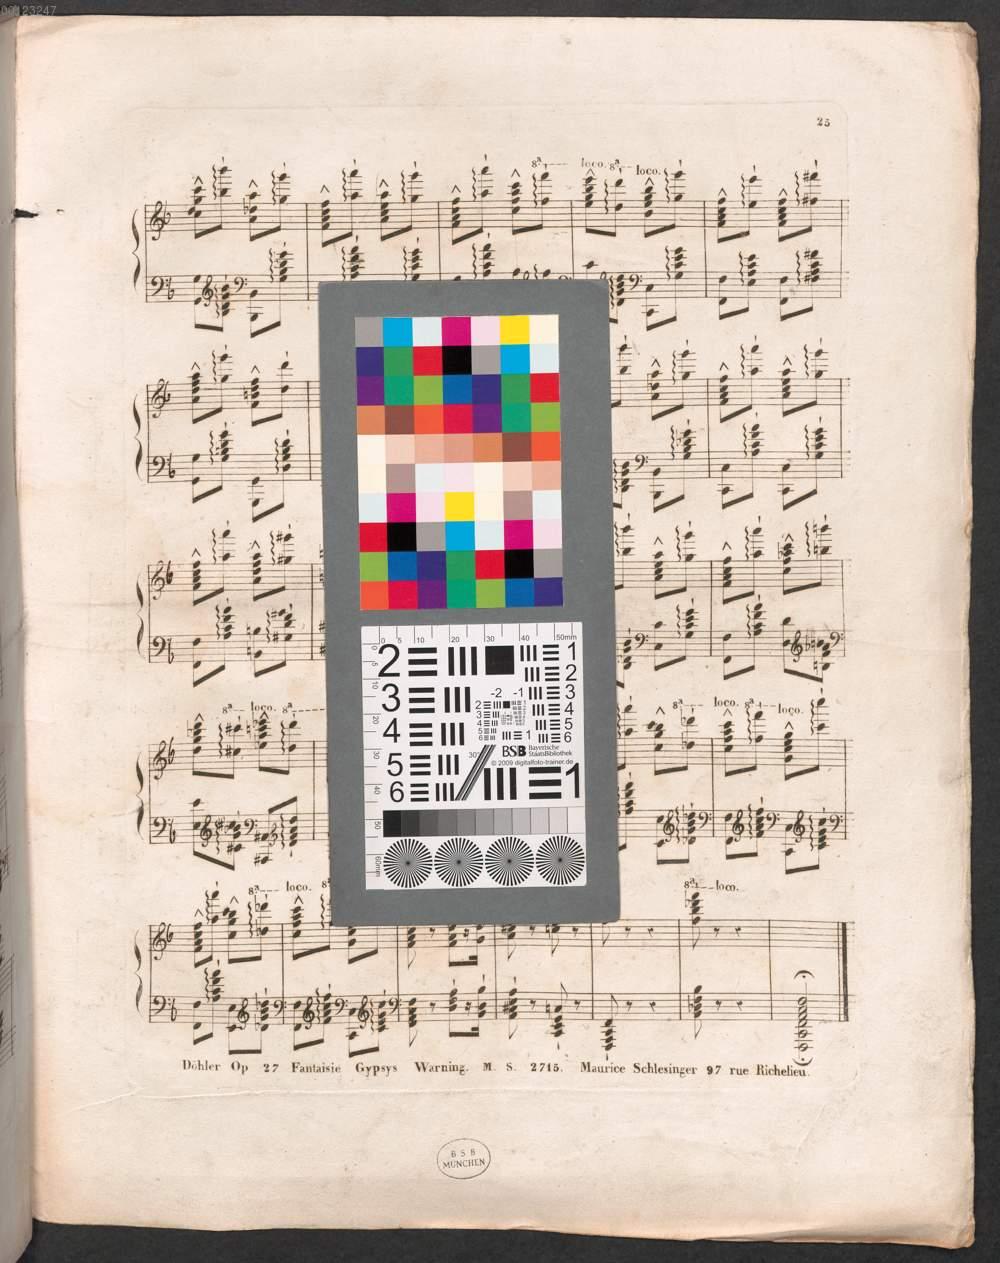 00123247
25
8ª loco. 8ª loco.
8ª loco. 8ª loco. 8ª loco.
8ª loco. 8ª 8ª loco.
0 5 10 20 30 40 50mm
2 1
2
3 -2 -1 3
4 4
5
5 6
BSB Bayerische StaatsBibliothek
© 2009 digitalfoto-trainer.de
6 1
Döhler Op 27 Fantaisie Gypsys Warning. M. S. 2715. Maurice Schlesinger 97 rue Richelieu.
BSB
MÜNCHEN